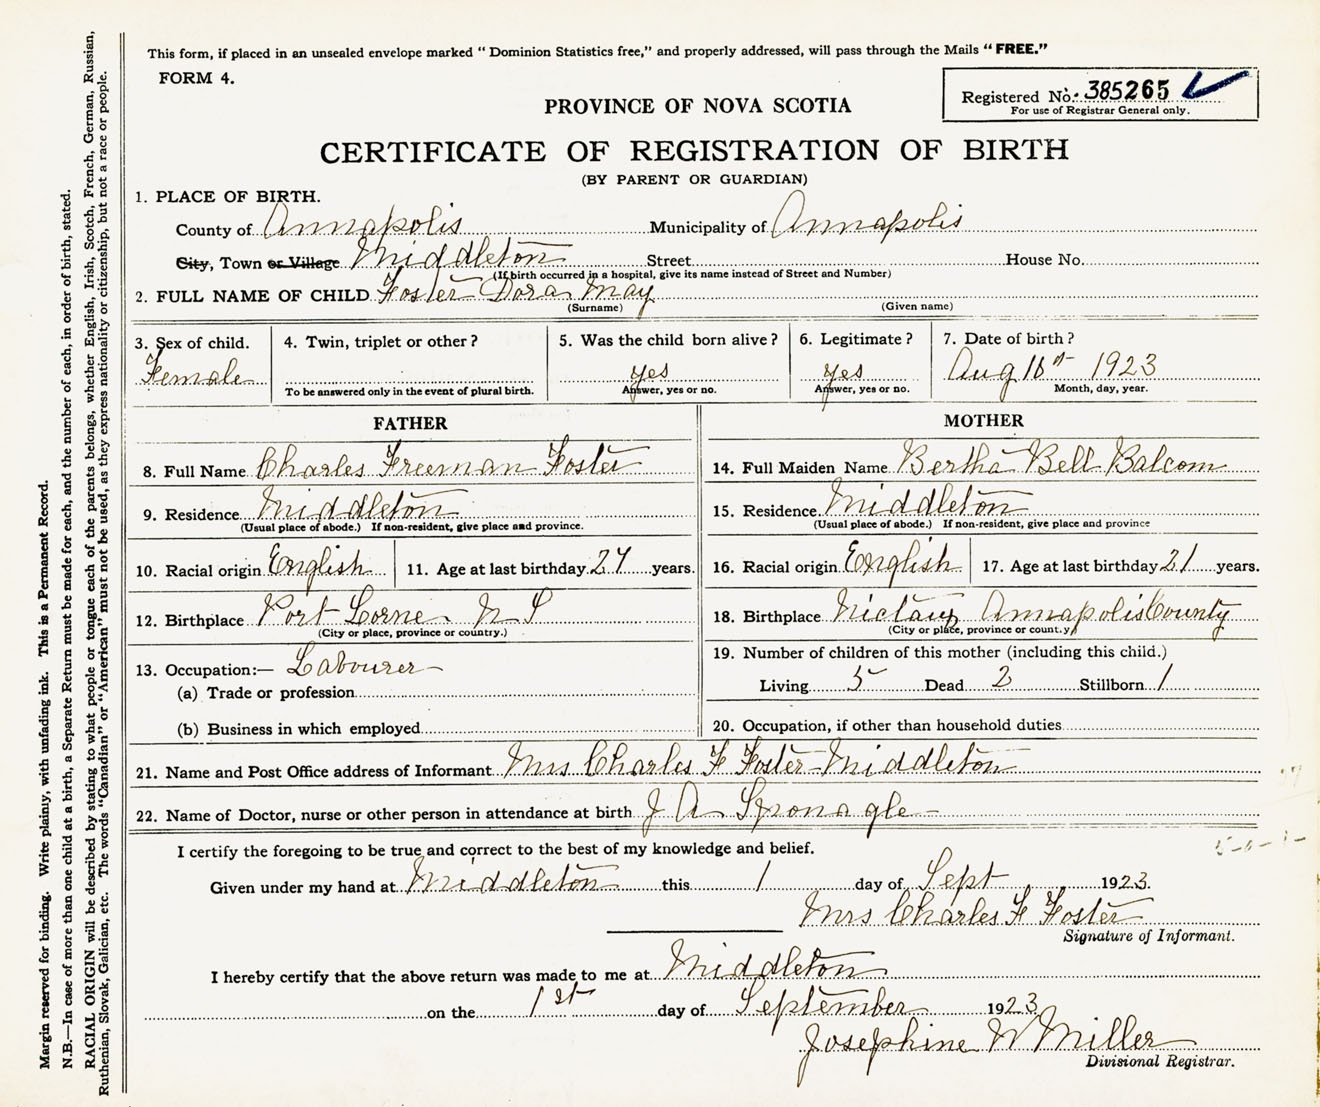 This form, if placed in an unsealed envelope marked “ Dominion Statistics free,” and properly addressed, will pass through the Mails “ FREE.”
FORM 4.
Registered No. 385265
For use of Registrar General only.
PROVINCE OF NOVA SCOTIA
CERTIFICATE OF REGISTRATION OF BIRTH
(BY PARENT OR GUARDIAN)
1. PLACE OF BIRTH.
County of Annapolis Municipality of Annapolis
City, Town or Village Middleton Street House No.
(If birth occurred in a hospital, give its name instead of Street and Number)
2. FULL NAME OF CHILD Foster Dora May
(Surname) (Given name)
3. Sex of child. 4. Twin, triplet or other ? 5. Was the child born alive ? 6. Legitimate ? 7. Date of birth ?
Female yes yes Aug 16th 1923
To be answered only in the event of plural birth. Answer, yes or no. Answer, yes or no. Month, day, year.
FATHER
8. Full Name Charles Freeman Foster
9. Residence Middleton
(Usual place of abode.) If non-resident, give place and province.
10. Racial origin English 11. Age at last birthday 27 years.
12. Birthplace Port Lorne N S
(City or place, province or country.)
13. Occupation:— Labourer
(a) Trade or profession
(b) Business in which employed
MOTHER
14. Full Maiden Name Bertha Bell Balcom
15. Residence Middleton
(Usual place of abode.) If non-resident, give place and province
16. Racial origin English 17. Age at last birthday 21 years.
18. Birthplace Nictaux Annapolis County
(City or place, province or count.y)
19. Number of children of this mother (including this child.)
Living 5 Dead 2 Stillborn 1
20. Occupation, if other than household duties
21. Name and Post Office address of Informant Mrs Charles F Foster - Middleton
22. Name of Doctor, nurse or other person in attendance at birth J A Sponagle
I certify the foregoing to be true and correct to the best of my knowledge and belief.
Given under my hand at Middleton this 1 day of Sept 1923.
Mrs Charles F Foster
Signature of Informant.
I hereby certify that the above return was made to me at Middleton
on the 1st day of September 1923
Josephine W Miller
Divisional Registrar.
Margin reserved for binding. Write plainly, with unfading ink. This is a Permanent Record.
N.B.—In case of more than one child at a birth, a Separate Return must be made for each, and the number of each, in order of birth, stated.
RACIAL ORIGIN will be described by stating to what people or tongue each of the parents belongs, whether English, Irish, Scotch, French, German, Russian,
Ruthenian, Slovak, Galician, etc. The words “Canadian” or “American” must not be used, as they express nationality or citizenship, but not a race or people.